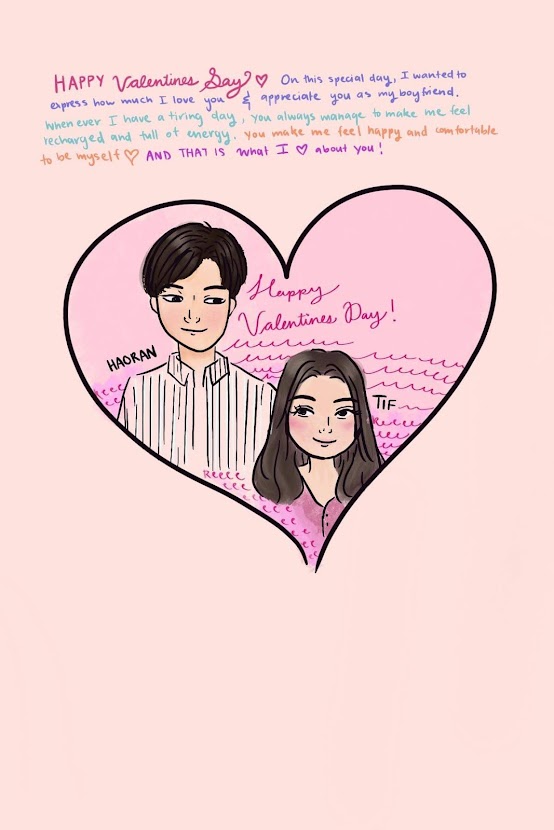 HAPPY Valentines Day ♡ On this special day, I wanted to
express how much I love you & appreciate you as my boyfriend.
whenever I have a tiring day, you always manage to make me feel
recharged and full of energy. You make me feel happy and comfortable
to be myself ♡ AND THAT IS what I ♡ about you!
Happy
Valentines Day!
HAORAN
TIF